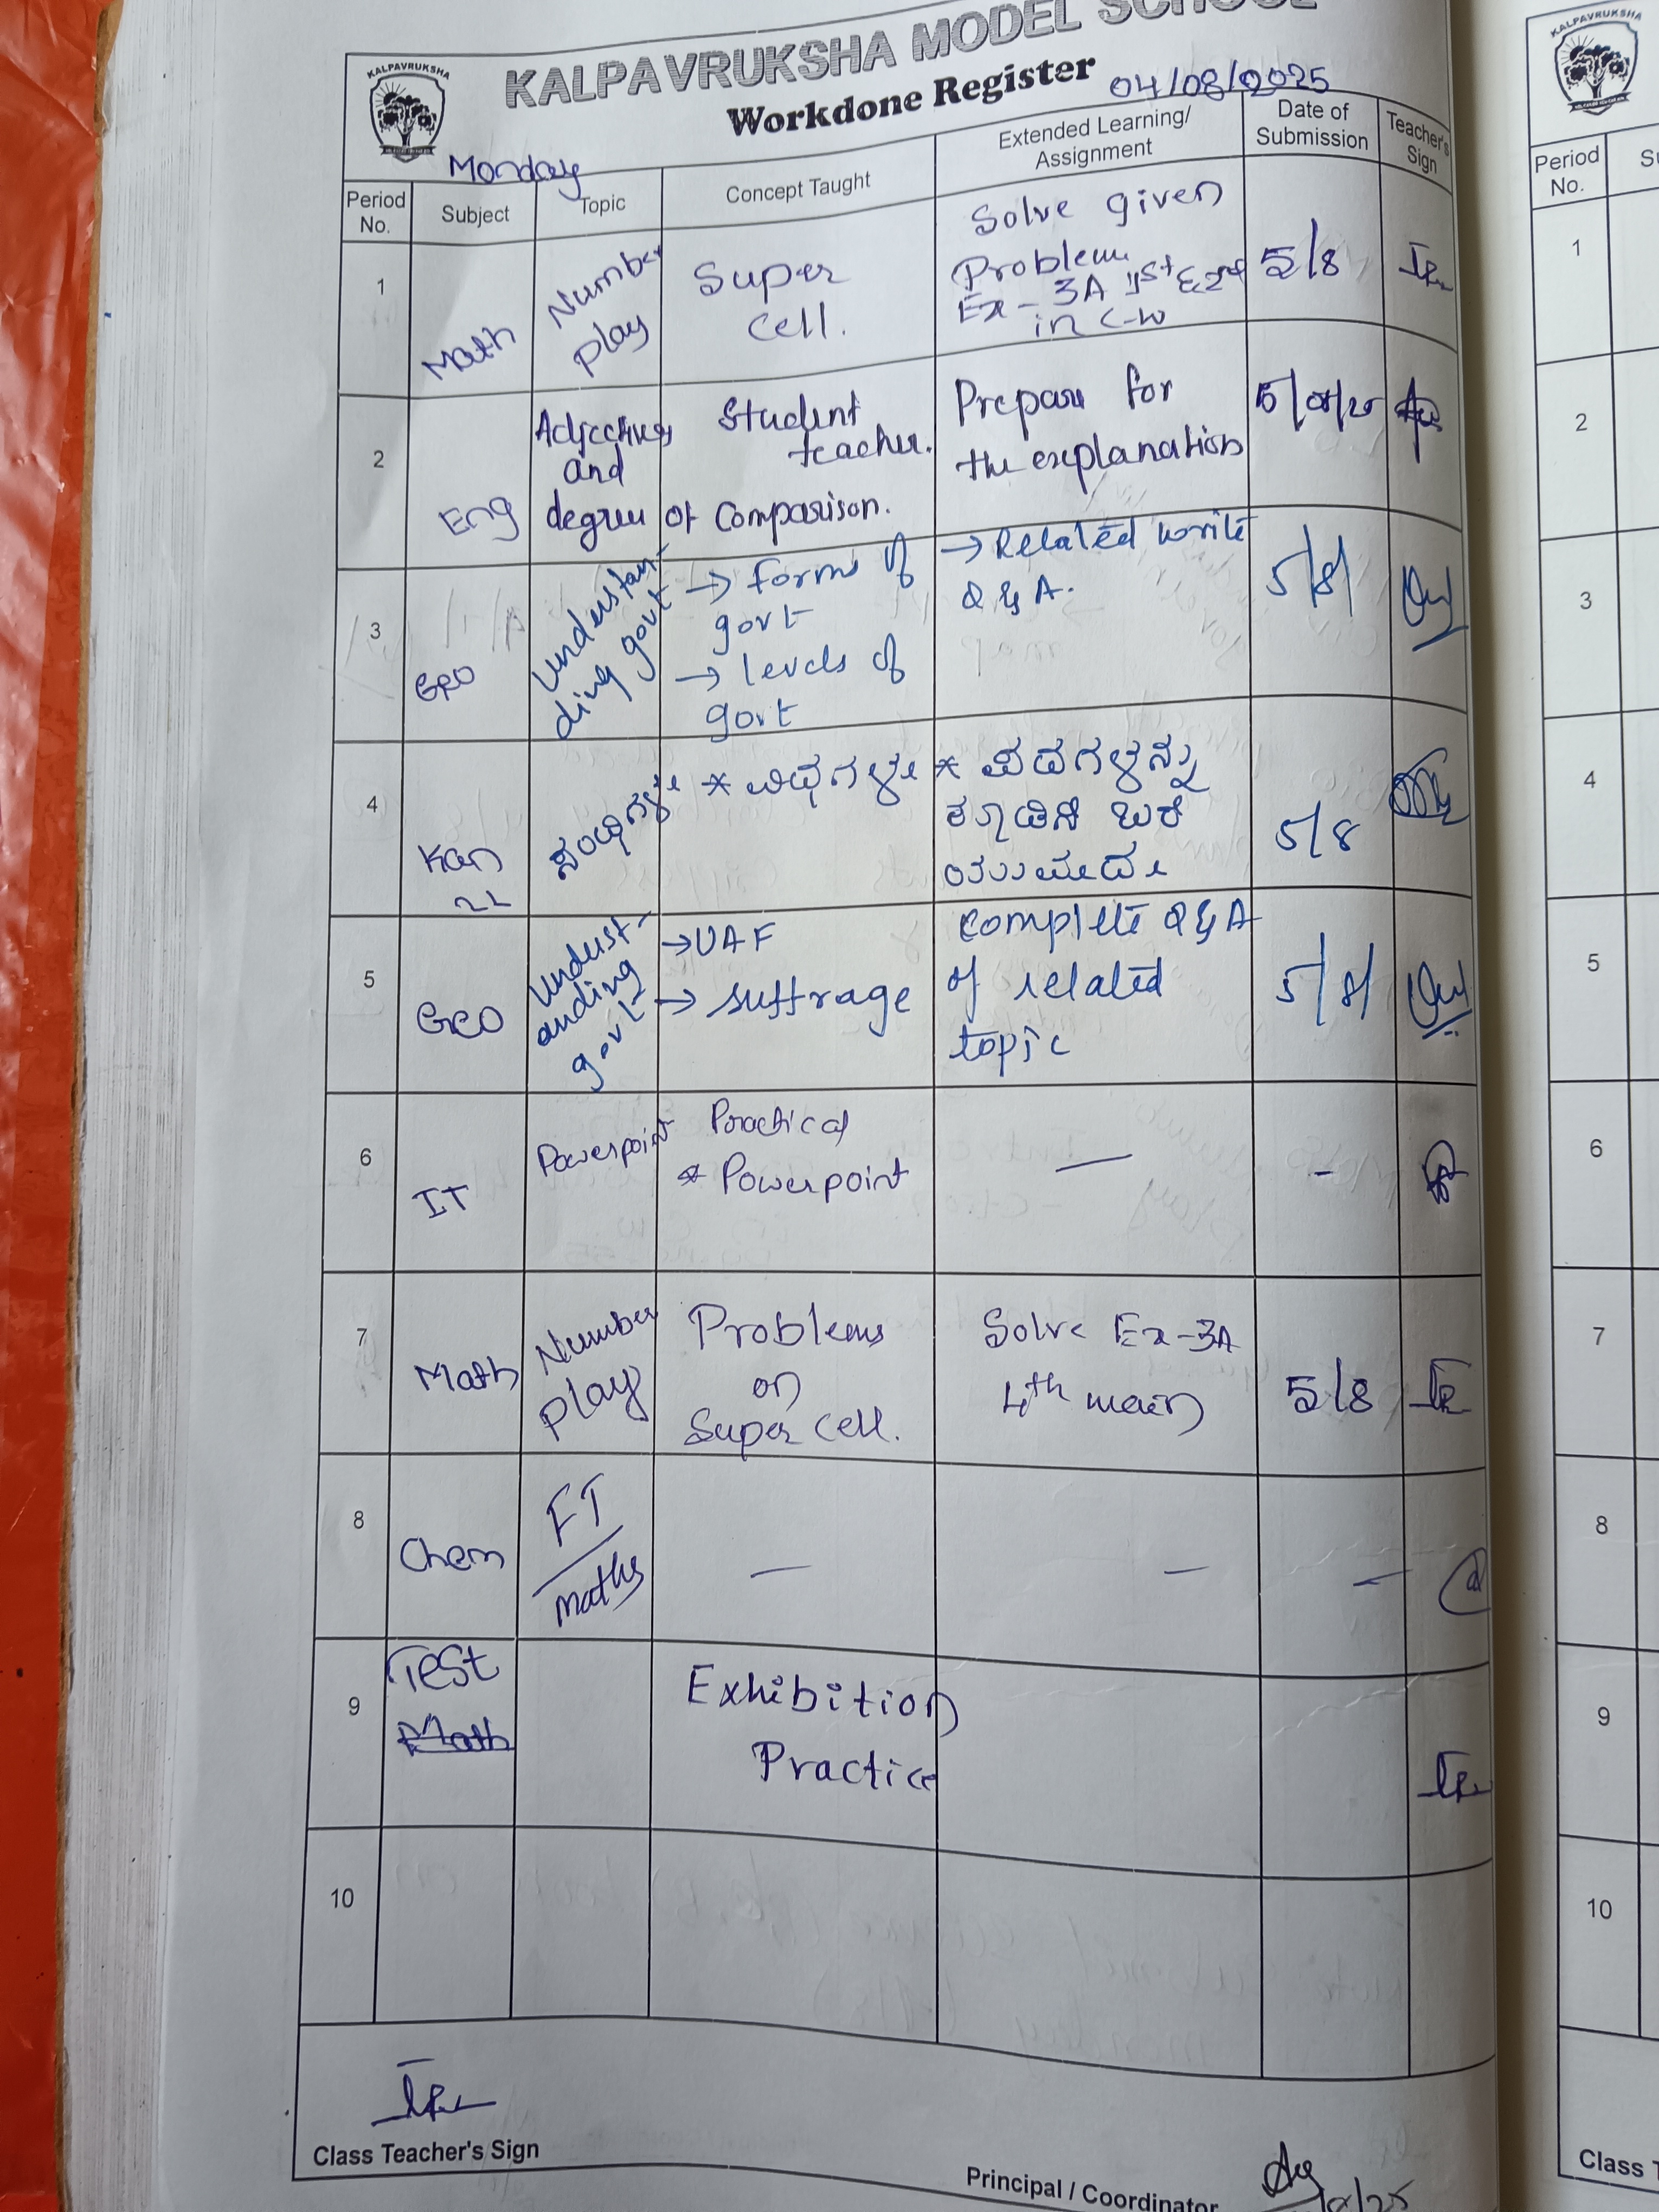 KALPAVRUKSHA
KALPAVRUKSHA MODEL SCHOOL
Workdone Register
04/08/2025
Monday
Period No.
Subject
Topic
Concept Taught
Extended Learning/
Assignment
Date of
Submission
Teacher's
Sign
1
Math
Number
play
Super
cell.
Solve given
Problem
Ex-3A 1st & 2nd
in C-W
5/8
2
Eng
Adjectives
and
degree of Comparison.
Student
teacher.
Prepare for
the explanation
5/08/25
3
Geo
Understan-
ding govt
→ forms of
govt
→ levels of
govt
→ Related write
Q & A.
5/8/
4
Kan
2L
* ಪದಗಳನ್ನು
5/8
5
Geo
Underst-
anding
govt
→ UAF
→ suffrage
Complete Q & A
of related
topic
5/8/
6
IT
Powerpoint
Practical
* Powerpoint
—
-
7
Math
Number
play
Problems
on
Super cell.
Solve Ex-3A
4th main
5/8
8
Chem
FT
maths
—
—
—
9
Test
Math
Exhibition
Practice
10
Class Teacher's Sign
Principal / Coordinator
KALPAVRUKSHA
Period
No.
1
2
3
4
5
6
7
8
9
10
Class